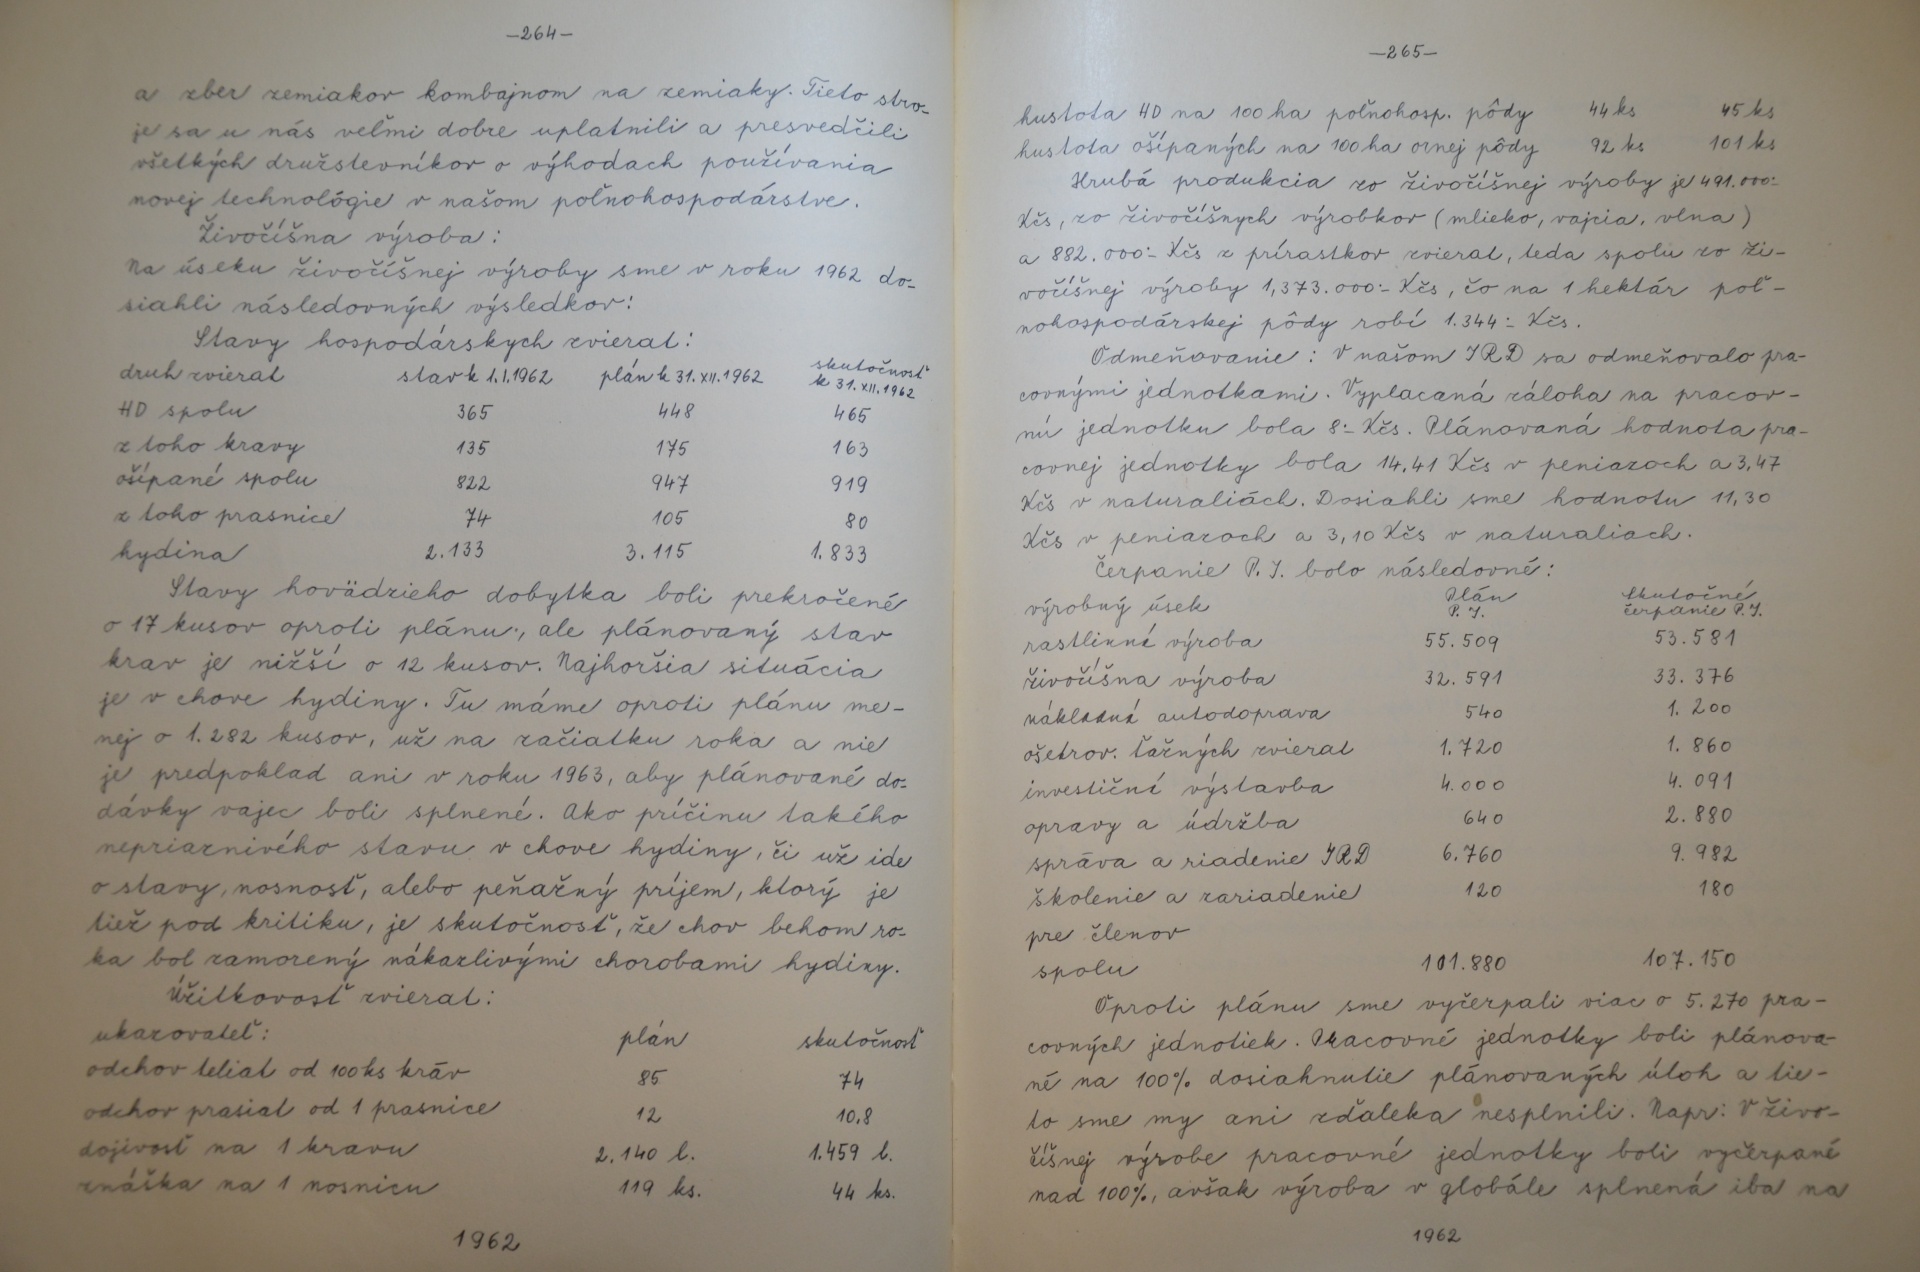 -264-
a zber zemiakov kombajnom na zemiaky. Tieto stro-
je sa u nás veľmi dobre uplatnili a presvedčili
všetkých družstevníkov o výhodach používania
novej technológie v našom poľnohospodárstve.
Živočíšna výroba:
Na úseku živočíšnej výroby sme v roku 1962 do-
siahli následovných výsledkov:
Stavy hospodárskych zvierat:
druh zvierat stav k 1.I.1962 plán k 31.XII.1962 skutočnosť k 31.XII.1962
HD spolu 365 448 465
z toho kravy 135 175 163
ošípané spolu 822 947 919
z toho prasnice 74 105 80
hydina 2.133 3.115 1.833
Stavy hovädzieho dobytka boli prekročené
o 17 kusov oproti plánu, ale plánovaný stav
krav je nižší o 12 kusov. Najhoršia situácia
je v chove hydiny. Tu máme oproti plánu me-
nej o 1.282 kusov, už na začiatku roka a nie
je predpoklad ani v roku 1963, aby plánované do-
dávky vajec boli splnené. Ako príčinu takého
nepriaznivého stavu v chove hydiny, či už ide
o stavy, nosnosť, alebo peňažný príjem, ktorý je
tiež pod kritiku, je skutočnosť, že chov behom ro-
ka bol zamorený nákazlivými chorobami hydiny.
Úžitkovosť zvierat:
ukazovateľ: plán skutočnosť
odchov teliat od 100 ks kráv 85 74
odchov prasiat od 1 prasnice 12 10,8
dojivosť na 1 kravu 2.140 l. 1.459 l.
znáška na 1 nosnicu 119 ks. 44 ks.
1962
-265-
hustota HD na 100 ha poľnohosp. pôdy 44 ks 45 ks
hustota ošípaných na 100 ha ornej pôdy 92 ks 101 ks
Hrubá produkcia zo živočíšnej výroby je 491.000:-
Kčs, zo živočíšnych výrobkov (mlieko, vajcia, vlna)
a 882.000:- Kčs z prírastkov zvierat, teda spolu zo ži-
vočíšnej výroby 1,373.000:- Kčs, čo na 1 hektár poľ-
nohospodárskej pôdy robí 1.344:- Kčs.
Odmeňovanie: V našom JRD sa odmeňovalo pra-
covnými jednotkami. Vyplacaná záloha na pracov-
nú jednotku bola 8:- Kčs. Plánovaná hodnota pra-
covnej jednotky bola 14,41 Kčs v peniazoch a 3,47
Kčs v naturaliách. Dosiahli sme hodnotu 11,30
Kčs v peniazoch a 3,10 Kčs v naturaliach.
Čerpanie P.J. bolo následovné:
výrobný úsek Plán P.J. Skutočné čerpanie P.J.
rastlinná výroba 55.509 53.581
živočíšna výroba 32.591 33.376
nákladná autodoprava 540 1.200
ošetrov. ťažných zvierat 1.720 1.860
investičná výstavba 4.000 4.091
opravy a údržba 640 2.880
správa a riadenie JRD 6.760 9.982
školenie a zariadenie 120 180
pre členov
spolu 101.880 107.150
Oproti plánu sme vyčerpali viac o 5.270 pra-
covných jednotiek. Pracovné jednotky boli plánova-
né na 100% dosiahnutie plánovaných úloh a tie-
to sme my ani zďaleka nesplnili. Napr: V živo-
číšnej výrobe pracovné jednotky boli vyčerpané
nad 100%, avšak výroba v globále splnená iba na
1962